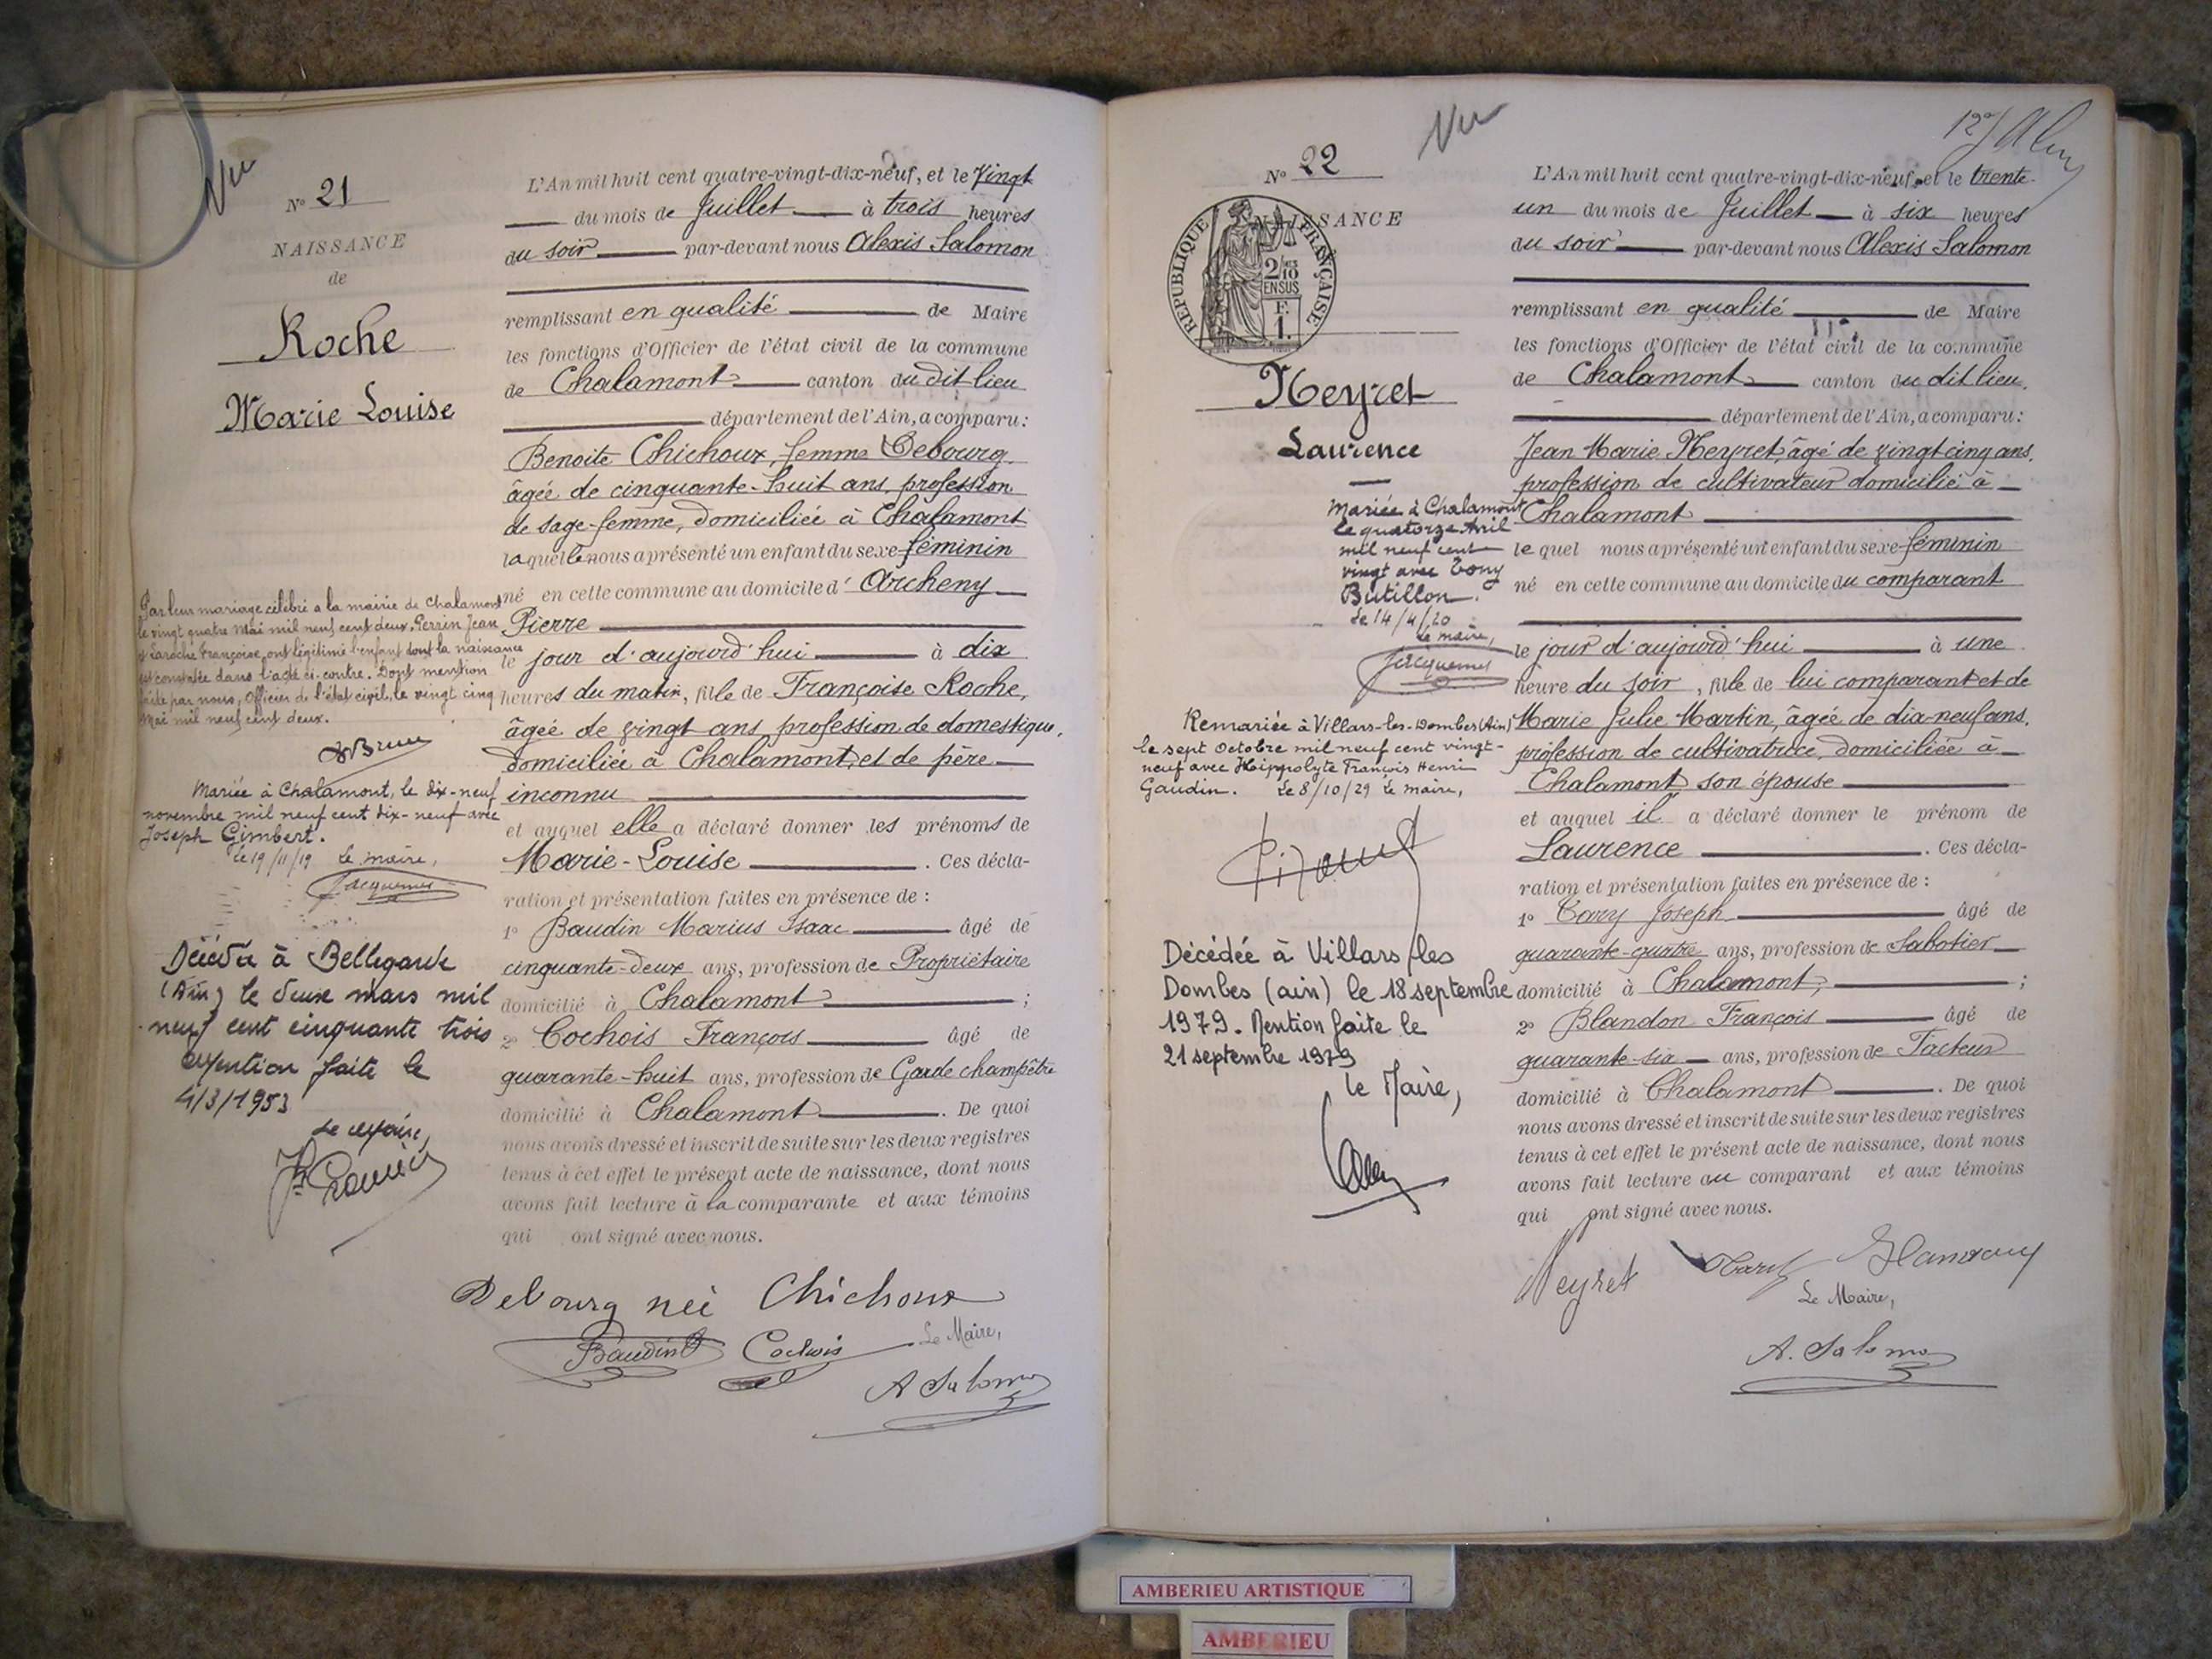 Vu
N° 21
NAISSANCE
de
Roche
Marie Louise
Par leur mariage célébré a la mairie de Chalamont
le vingt quatre Mai mil neuf cent deux, Perrin Jean
et Laroche Françoise, ont légitimé l'enfant dont la naissance
est constatée dans l'acte ci-contre. Dont mention
faite par nous, Officier de l'état civil, le vingt cinq
Mai mil neuf cent deux.
Mariée à Chalamont, le dix-neuf
novembre mil neuf cent dix-neuf avec
Joseph Gimbert.
Le 19/11/19 Le maire,
Jacquemet
Décédée à Bellegarde
(Ain) le deux mars mil
neuf cent cinquante trois
Mention faite le
4/3/1953
Le Maire,
L'An mil huit cent quatre-vingt-dix-neuf, et le Vingt
du mois de Juillet à trois heures
du soir par-devant nous Alexis Salomon
remplissant en qualité de Maire
les fonctions d'Officier de l'état civil de la commune
de Chalamont canton du dit lieu
département de l'Ain, a comparu:
Benoite Chichoux, femme Debourg
âgée de cinquante-huit ans, profession
de sage-femme, domiciliée à Chalamont
laquelle nous a présenté un enfant du sexe féminin
né en cette commune au domicile d' Archeny
Pierre
le jour d'aujourd'hui à dix
heures du matin, fille de Françoise Roche,
âgée de vingt ans profession de domestique,
domiciliée à Chalamont, et de père
inconnu
et auquel elle a déclaré donner les prénoms de
Marie-Louise . Ces décla-
ration et présentation faites en présence de :
1° Baudin Marius Isaac âgé de
cinquante-deux ans, profession de Propriétaire
domicilié à Chalamont ;
2° Cochois François âgé de
quarante-huit ans, profession de Garde champêtre
domicilié à Chalamont . De quoi
nous avons dressé et inscrit de suite sur les deux registres
tenus à cet effet le présent acte de naissance, dont nous
avons fait lecture à la comparante et aux témoins
qui ont signé avec nous.
Debourg née Chichoux
Baudin Cochois Le Maire,
A Salomon
Vu
N° 22
NAISSANCE
RÉPUBLIQUE FRANÇAISE
2/10 EN SUS
F.
1.
Neyret
Laurence
Mariée à Chalamont
le quatorze Avril
mil neuf cent
vingt avec Tony
Butillon.
Le 14/4/20
Le maire,
Jacquemet
Remariée à Villars-les-Dombes (Ain)
le sept Octobre mil neuf cent vingt-
neuf avec Hippolyte François Henri
Gaudin. Le 8/10/29 Le maire,
Décédée à Villars les
Dombes (ain) le 18 septembre
1979. Mention faite le
21 septembre 1979
le Maire,
L'An mil huit cent quatre-vingt-dix-neuf, et le trente-
un du mois de Juillet à six heures
du soir par-devant nous Alexis Salomon
remplissant en qualité de Maire
les fonctions d'Officier de l'état civil de la commune
de Chalamont canton du dit lieu,
département de l'Ain, a comparu:
Jean Marie Neyret, âgé de vingt cinq ans,
profession de cultivateur domicilié à
Chalamont
lequel nous a présenté un enfant du sexe féminin
né en cette commune au domicile du comparant
le jour d'aujourd'hui à une
heure du soir, fille de lui comparant et de
Marie Julie Martin, âgée de dix-neuf ans,
profession de cultivatrice, domiciliée à
Chalamont son épouse
et auquel il a déclaré donner le prénom de
Laurence . Ces décla-
ration et présentation faites en présence de :
1° Joseph âgé de
quarante-quatre ans, profession de Sabotier
domicilié à Chalamont, ;
2° Blandon François âgé de
quarante-six ans, profession de Facteur
domicilié à Chalamont . De quoi
nous avons dressé et inscrit de suite sur les deux registres
tenus à cet effet le présent acte de naissance, dont nous
avons fait lecture au comparant et aux témoins
qui ont signé avec nous.
Neyret
Le Maire,
A. Salomon
AMBERIEU ARTISTIQUE
AMBERIEU